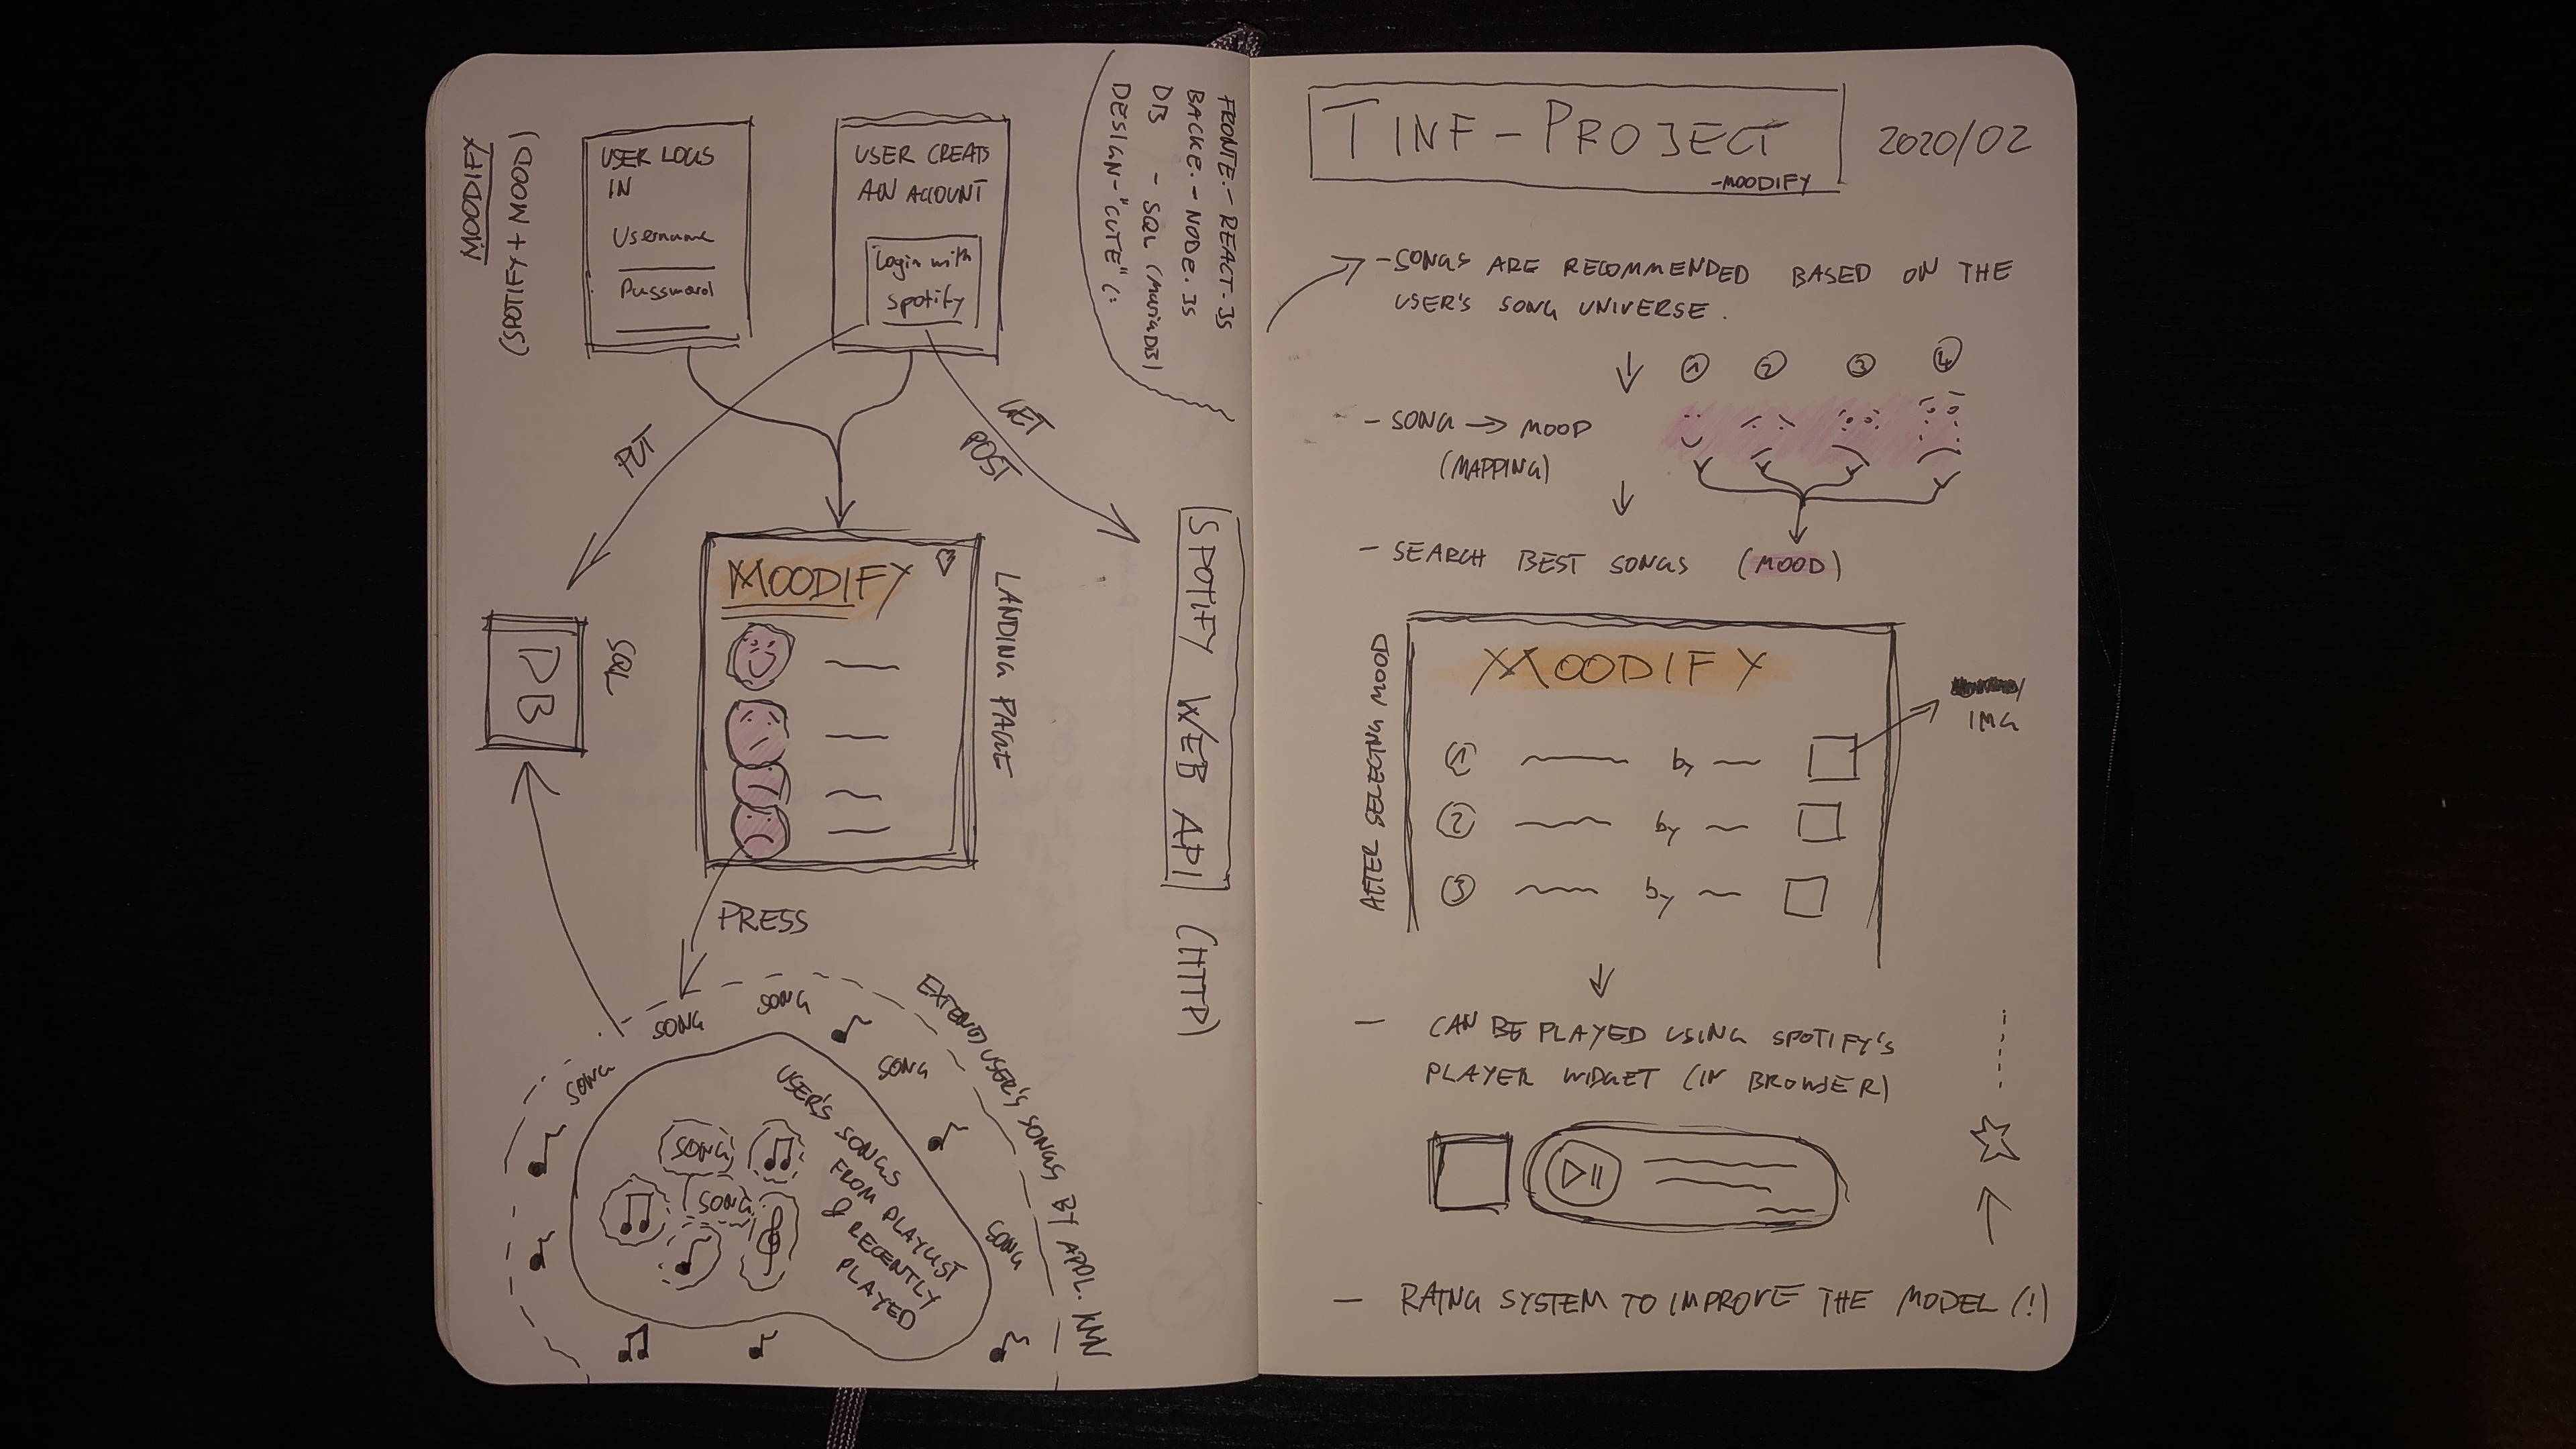 MOODIFY
(SPOTIFY + MOOD)
USER LOGS
IN
Username
Password
USER CREATS
AN ACCOUNT
Login with
spotify
FRONTE. - REACT.JS
BACKE. - NODE.JS
DB - SQL (MariaDB)
DESIGN - "CUTE" (:
PUT
GET
POST
SPOTIFY WEB API (HTTP)
MOODIFY
LANDING PAGE
SQL
DB
PRESS
SONG
SONG
SONG
SONG
SONG
EXTEND USER'S SONGS BY APPL. KNN
USER'S SONGS
FROM PLAYLIST
& RECENTLY
PLAYED
SONG
SONG
TINF - PROJECT
- MOODIFY
2020/02
- SONGS ARE RECOMMENDED BASED ON THE
USER'S SONG UNIVERSE.
1 2 3 4
- SONG → MOOD
(MAPPING)
- SEARCH BEST SONGS (MOOD)
AFTER SELECTING MOOD
MOODIFY
1 by
IMG
2 by
3 by
- CAN BE PLAYED USING SPOTIFY'S
PLAYER WIDGET (IN BROWSER)
- RATNG SYSTEM TO IMPROVE THE MODEL (!)